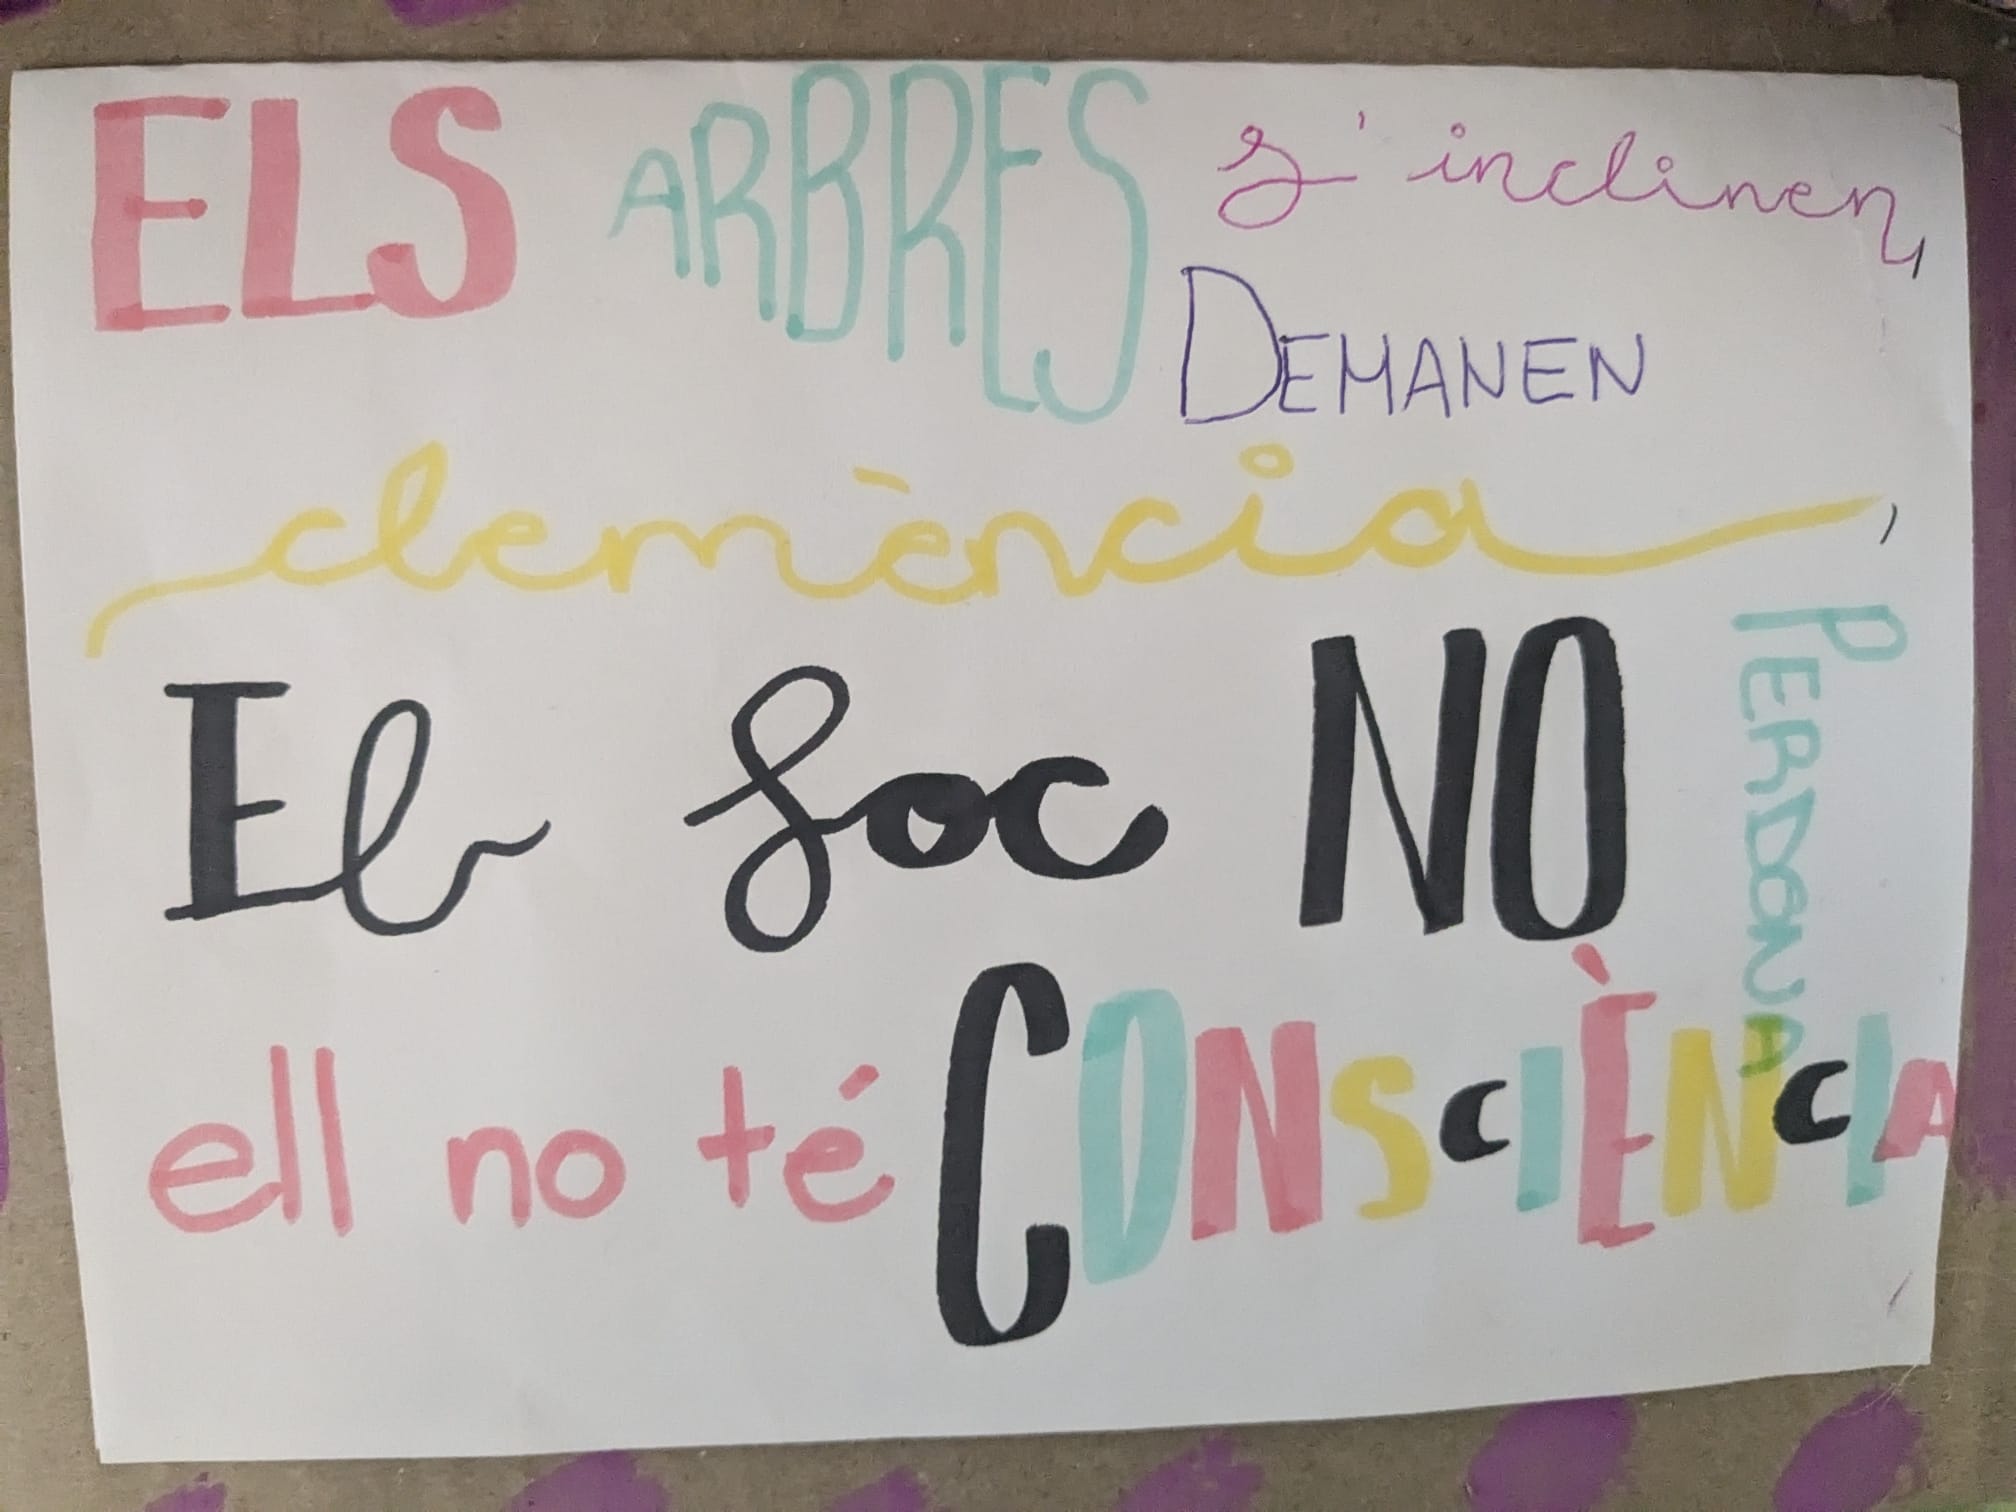 ELS ARBRES s'inclinen,
DEMANEN
clemència,
El foc NO
PERDONA
ell no té CONSCIÈNCIA